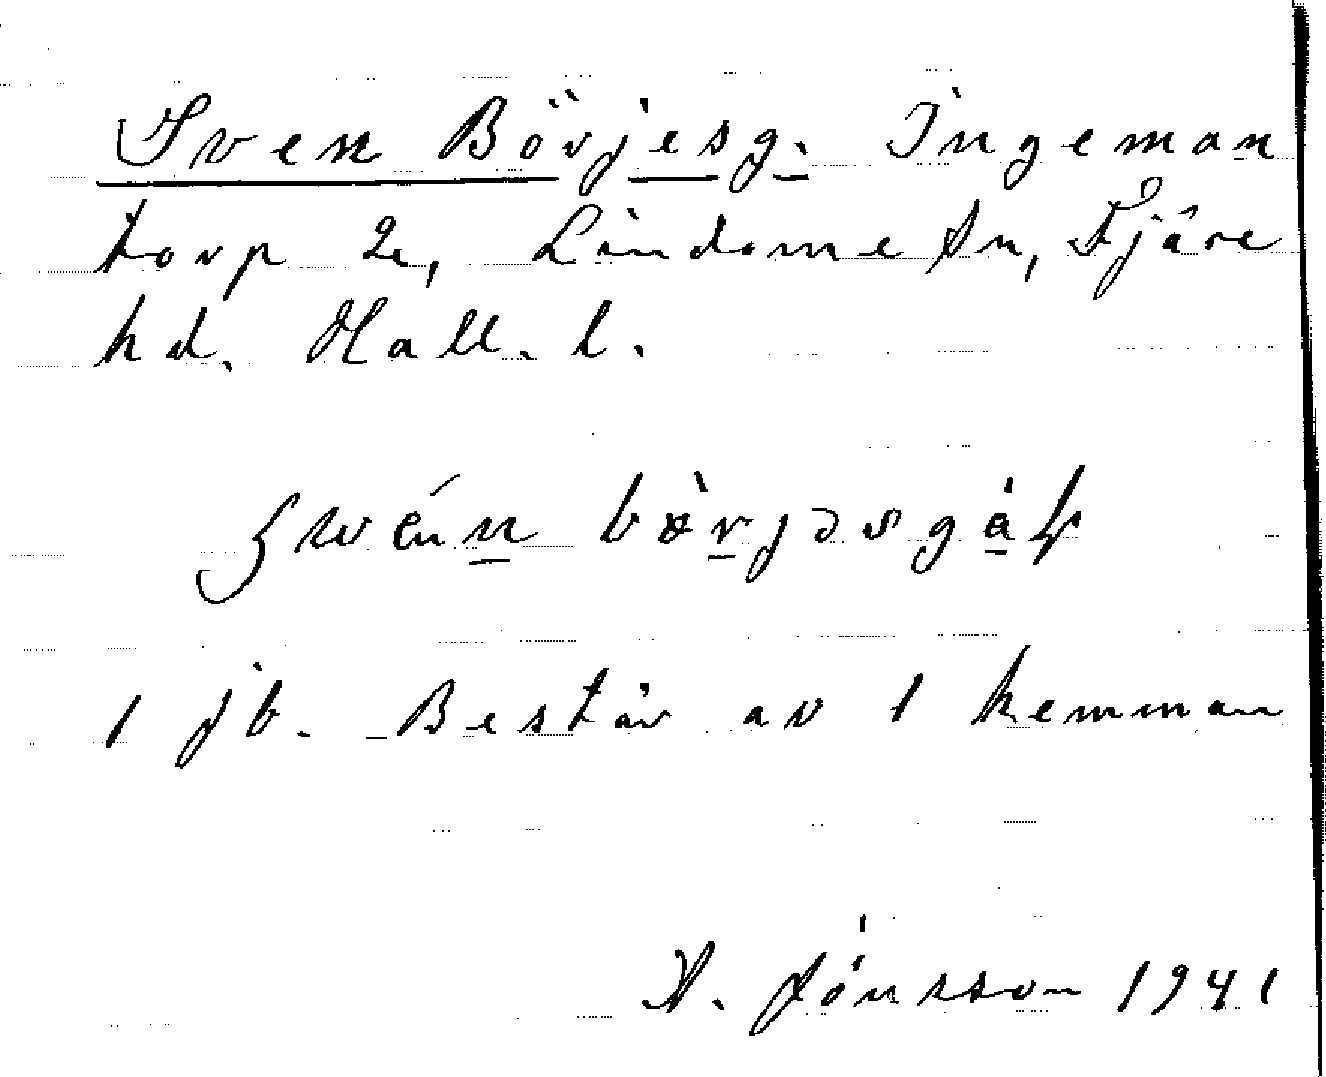 Sven Börjesg. Ingeman
torp 2, Lindome sn, Fjäre
hd. Hall. l.
1 jb. Består av 1 hemman
A. Jónsson 1941